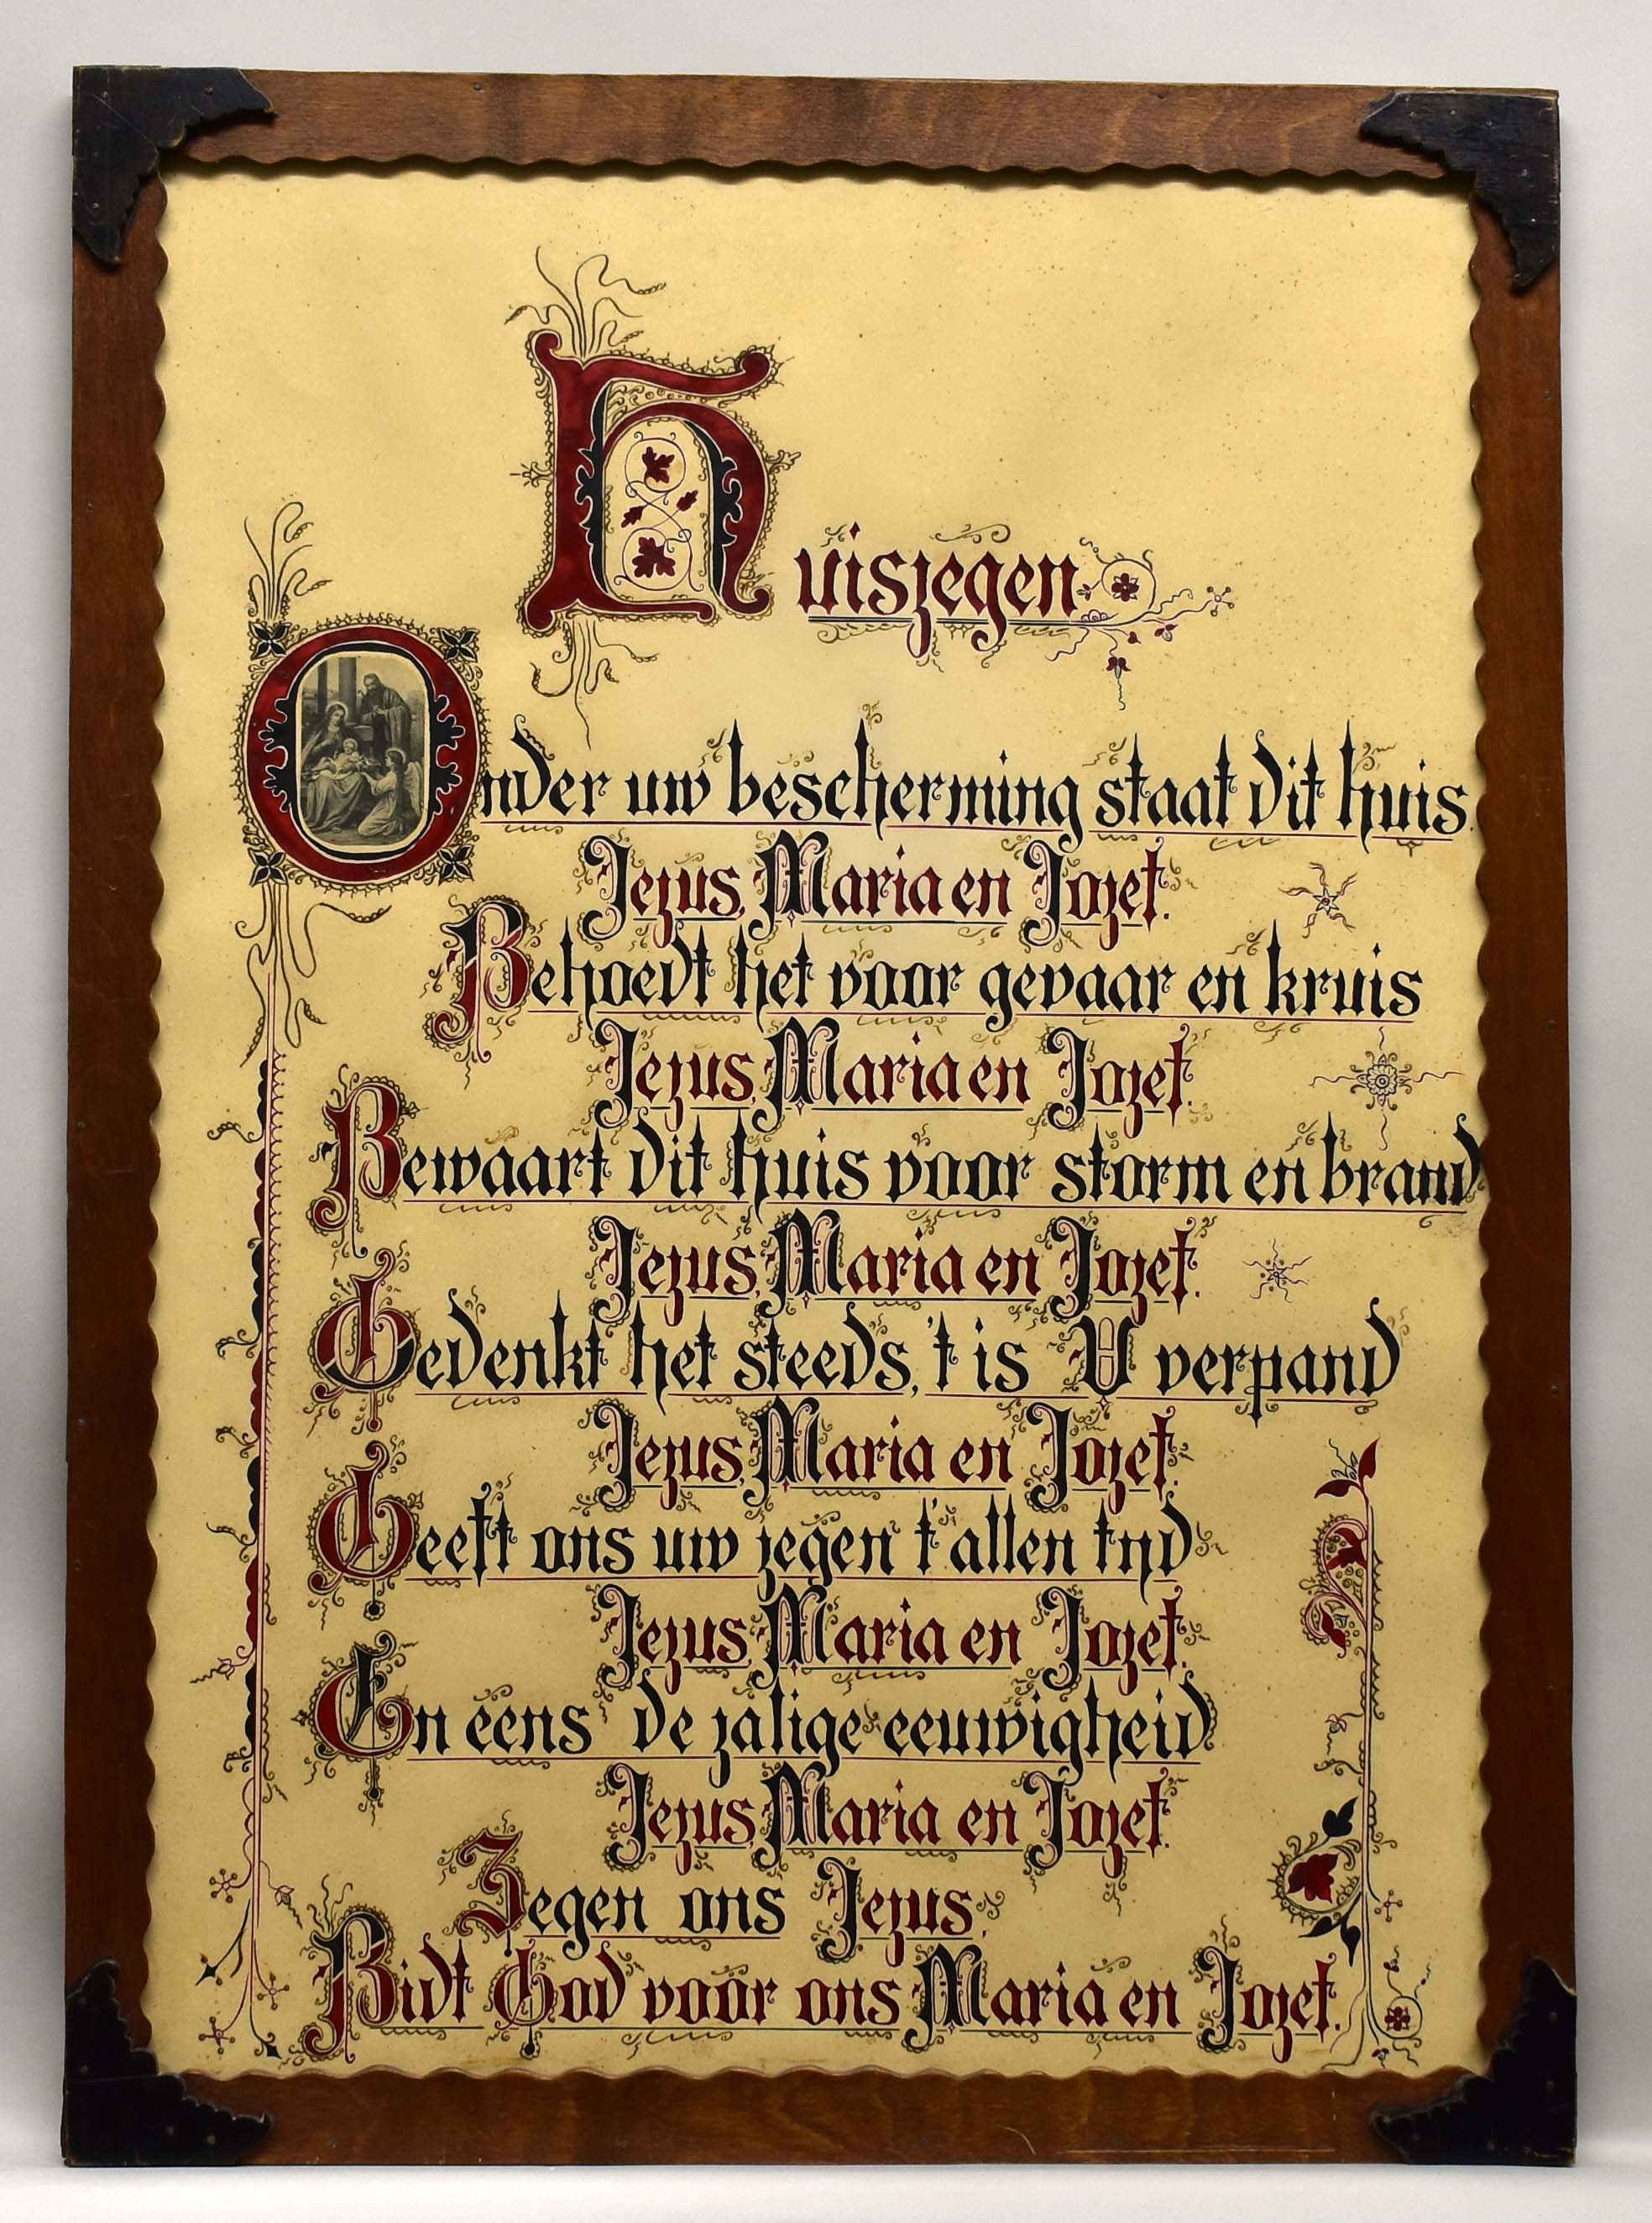 Huiszegen
Onder uw bescherming staat dit huis.
Jezus, Maria en Jozef.
Behoedt het voor gevaar en kruis
Jezus, Maria en Jozef.
Bewaart dit huis voor storm en brand
Jezus, Maria en Jozef.
Gedenkt het steeds, 't is U verpand
Jezus, Maria en Jozef.
Geeft ons uw zegen t' allen tijd
Jezus, Maria en Jozef.
En eens de zalige eeuwigheid
Jezus, Maria en Jozef.
Zegen ons Jezus.
Bidt God voor ons Maria en Jozef.